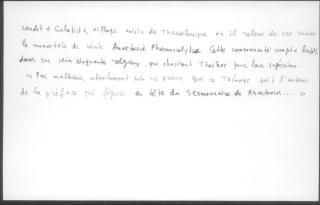 rendit à Galatista, village voisin de Thessalonique où il releva de ses ruines
le monastère de sainte Anastasie Pharmacolytria. Cette communauté compta bientôt
dans son sein cinquante religieux, qui choisirent Théonas pour leur supérieur.
» Par malheur, absolument rien ne prouve que ce Théonas soit l'auteur
de la préface qui figure en tête du Sermonnaire de Rhartouros.... »